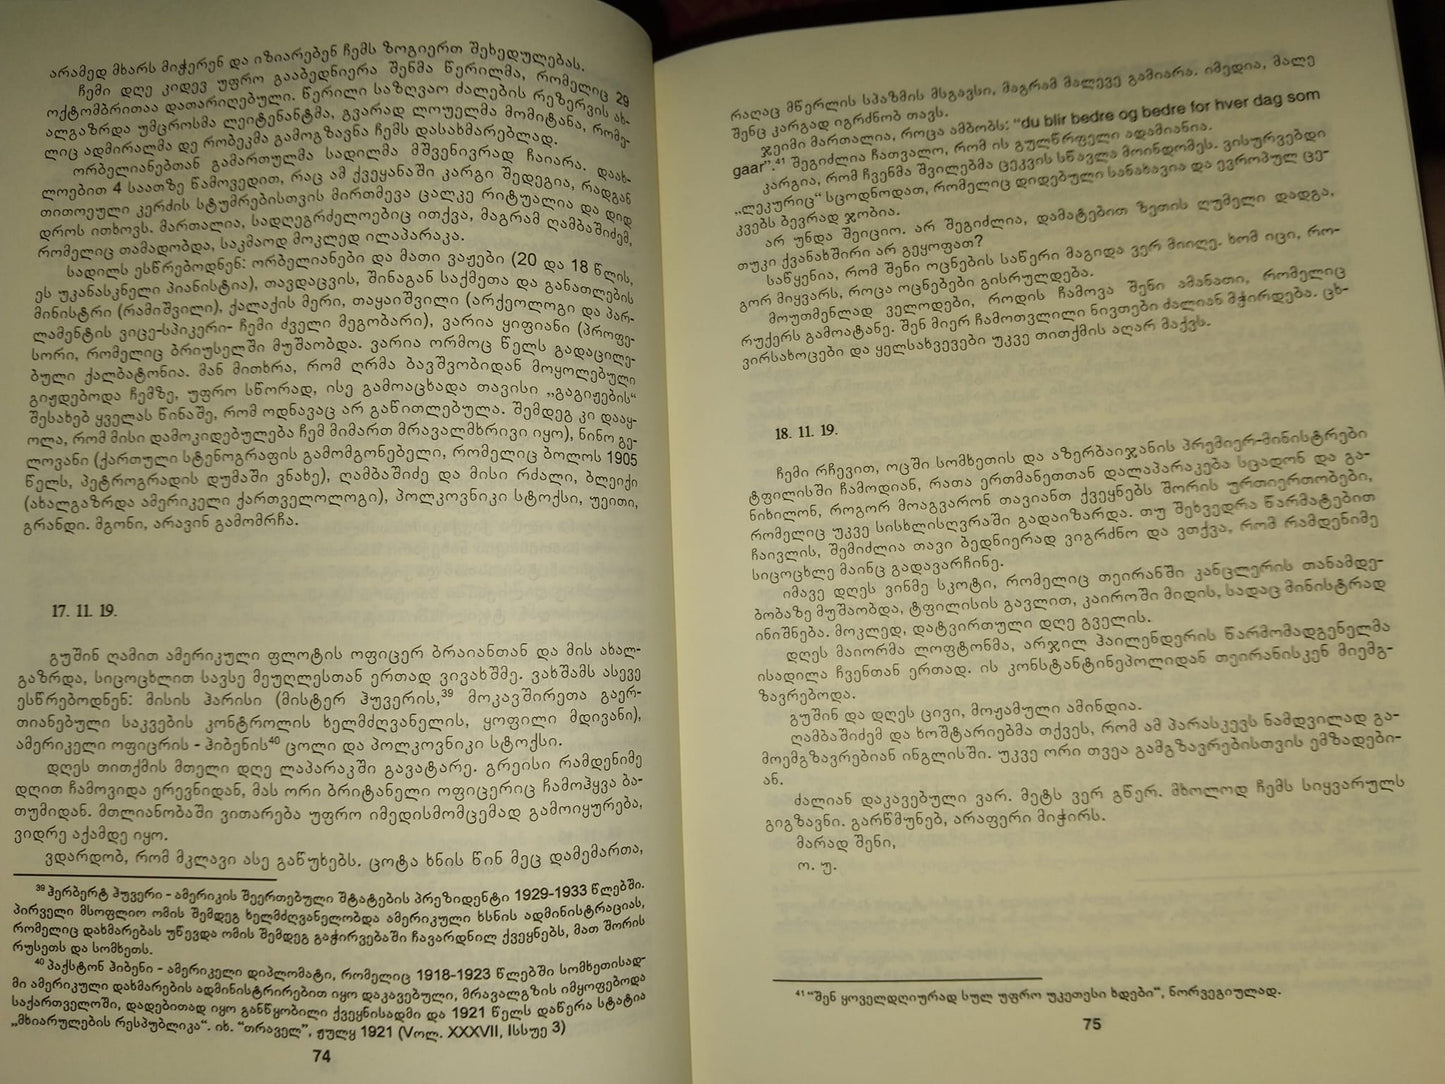 არამედ მხარს მიჭერენ და იზიარებენ ჩემს ზოგიერთ შეხედულებას.
ჩემი დღე კიდევ უფრო გააბედნიერა შენმა წერილმა, რომელიც 29
ოქტომბრითაა დათარიღებული. წერილი საზღვაო ძალების რეზერვის ახ-
ალგაზრდა უმცროსმა ლეიტენანტმა, გვარად ლოუელმა მომიტანა, რომე-
ლიც ადმირალმა დე რობეკმა გამოგზავნა ჩემს დასახმარებლად.
ორბელიანებთან გამართულმა სადილმა მშვენივრად ჩაიარა. დაახ-
ლოებით 4 საათზე წამოვედით, რაც ამ ქვეყანაში კარგი შედეგია, რადგან
თითოეული კერძის სტუმრებისთვის მირთმევა ცალკე რიტუალია და დიდ
დროს ითხოვს. მართალია, სადღეგრძელოებიც ითქვა, მაგრამ ღამბაშიძემ,
რომელიც თამადობდა, საკმაოდ მოკლედ ილაპარაკა.
სადილს ესწრებოდნენ: ორბელიანები და მათი ვაჟები (20 და 18 წლის,
ეს უკანასკნელი პიანისტია), თავდაცვის, შინაგან საქმეთა და განათლების
მინისტრი (რამიშვილი), ქალაქის მერი, თაყაიშვილი (არქეოლოგი და პარ-
ლამენტის ვიცე-სპიკერი- ჩემი ძველი მეგობარი), ვარია ყიფიანი (პროფე-
სორი, რომელიც ბრიუსელში მუშაობდა. ვარია ორმოც წელს გადაცილე-
ბული ქალბატონია. მან მითხრა, რომ ღრმა ბავშვობიდან მოყოლებული
გიჟდებოდა ჩემზე, უფრო სწორად, ისე გამოაცხადა თავისი „გაგიჟების“
შესახებ ყველას წინაშე, რომ ოდნავაც არ გაწითლებულა. შემდეგ კი დააყ-
ოლა, რომ მისი დამოკიდებულება ჩემ მიმართ მრავალმხრივი იყო), ნინო გე-
ლოვანი (ქართული სტენოგრაფის გამომგონებელი, რომელიც ბოლოს 1905
წელს, პეტროგრადის დუმაში ვნახე), ღამბაშიძე და მისი რძალი, ბლეიქი
(ახალგაზრდა ამერიკელი ქართველოლოგი), პოლკოვნიკი სტოქსი, უეითი,
გრანდი. მგონი, არავინ გამომრჩა.
17. 11. 19.
გუშინ ღამით ამერიკული ფლოტის ოფიცერ ბრაიანთან და მის ახალ-
გაზრდა, სიცოცხლით სავსე მეუღლესთან ერთად ვივახშმე. ვახშამს ასევე
ესწრებოდნენ: მისის ჰარისი (მისტერ ჰუვერის,³⁹ მოკავშირეთა გაერ-
თიანებული საკვების კონტროლის ხელმძღვანელის, ყოფილი მდივანი),
ამერიკელი ოფიცრის - ჰიბენის⁴⁰ ცოლი და პოლკოვნიკი სტოქსი.
დღეს თითქმის მთელი დღე ლაპარაკში გავატარე. გრეისი რამდენიმე
დღით ჩამოვიდა ერევნიდან, მას ორი ბრიტანელი ოფიცერიც ჩამოჰყვა ბა-
თუმიდან. მთლიანობაში ვითარება უფრო იმედისმომცემად გამოიყურება,
ვიდრე აქამდე იყო.
ვდარდობ, რომ მკლავი ასე გაწუხებს. ცოტა ხნის წინ მეც დამემართა,
³⁹ ჰერბერტ ჰუვერი - ამერიკის შეერთებული შტატების პრეზიდენტი 1929-1933 წლებში.
პირველი მსოფლიო ომის შემდეგ ხელმძღვანელობდა ამერიკული ხსნის ადმინისტრაციას,
რომელიც დახმარებას უწევდა ომის შემდეგ გაჭირვებაში ჩავარდნილ ქვეყნებს, მათ შორის
რუსეთს და სომხეთს.
⁴⁰ პაქსტონ ჰიბენი - ამერიკელი დიპლომატი, რომელიც 1918-1923 წლებში სომხეთისად-
მი ამერიკული დახმარების ადმინისტრირებით იყო დაკავებული, მრავალგზის იმყოფებოდა
საქართველოში, დადებითად იყო განწყობილი ქვეყნისადმი და 1921 წელს დაწერა სტატია
„მხიარულების რესპუბლიკა“. იხ. “თრაველ”, ჟულყ 1921 (Vოლ. XXXVII, Iსსუე 3)
74
რაღაც მწერლის სპაზმის მსგავსი, მაგრამ მალევე გამიარა. იმედია, მალე
შენც კარგად იგრძნობ თავს.
ჯეიმი მართალია, როცა ამბობს: “du blir bedre og bedre for hver dag som
gaar”.⁴¹ შეგიძლია ჩათვალო, რომ ის გულწრფელი ადამიანია.
კარგია, რომ ჩვენმა შვილებმა ცეკვის სწავლა მოინდომეს. ვისურვებდი
„ლეკურიც“ სცოდნოდათ, რომელიც დიდებული სანახავია და ევროპულ ცე-
კვებს ბევრად ჯობია.
არ უნდა შეიციო. არ შეგიძლია, დამატებით ზეთის ღუმელი დადგა,
თუკი ქვანახშირი არ გეყოფათ?
საწყენია, რომ შენი ოცნების საწერი მაგიდა ვერ მიიღე. ხომ იცი, რო-
გორ მიყვარს, როცა ოცნებები გისრულდება.
მოუთმენლად ველოდები, როდის ჩამოვა შენი ამანათი, რომელიც
რუქერს გამოატანე. შენ მიერ ჩამოთვლილი ნივთები ძალიან მჭირდება. ცხ-
ვირსახოცები და ყელსახვევები უკვე თითქმის აღარ მაქვს.
18. 11. 19.
ჩემი რჩევით, ოცში სომხეთის და აზერბაიჯანის პრემიერ-მინისტრები
ტფილისში ჩამოდიან, რათა ერთმანეთთან დალაპარაკება სცადონ და გა-
ნიხილონ, როგორ მოაგვარონ თავიანთ ქვეყნებს შორის ურთიერთობები,
რომელიც უკვე სისხლისღვრაში გადაიზარდა. თუ შეხვედრა წარმატებით
ჩაივლის, შემიძლია თავი ბედნიერად ვიგრძნო და ვთქვა, რომ რამდენიმე
სიცოცხლე მაინც გადავარჩინე.
იმავე დღეს ვინმე სკოტი, რომელიც თეირანში კანცლერის თანამდე-
ბობაზე მუშაობდა, ტფილისის გავლით, კაიროში მიდის, სადაც მინისტრად
ინიშნება. მოკლედ, დატვირთული დღე გველის.
დღეს მაიორმა ლოფტონმა, არჯილ ჰაილენდერის წარმომადგენელმა
ისადილა ჩვენთან ერთად. ის კონსტანტინეპოლიდან თეირანისკენ მიემგ-
ზავრებოდა.
გუშინ და დღეს ცივი, მოჟამული ამინდია.
ღამბაშიძემ და ხოშტარიებმა თქვეს, რომ ამ პარასკევს ნამდვილად გა-
მოემგზავრებიან ინგლისში. უკვე ორი თვეა გამგზავრებისთვის ემზადები-
ან.
ძალიან დაკავებული ვარ. მეტს ვერ გწერ. მხოლოდ ჩემს სიყვარულს
გიგზავნი. გარწმუნებ, არაფერი მიჭირს.
მარად შენი,
ო. უ.
⁴¹ “შენ ყოველდღიურად სულ უფრო უკეთესი ხდები“, ნორვეგიულად.
75